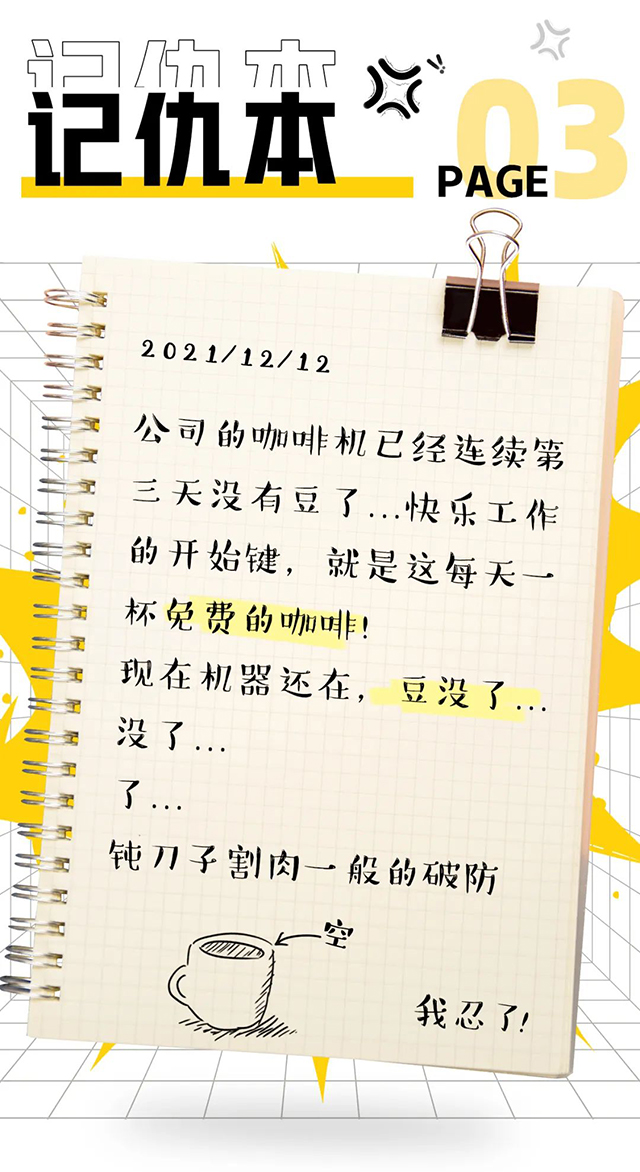 记仇本
记仇本
03
PAGE
2021/12/12
公司的咖啡机已经连续第
三天没有豆了...快乐工作
的开始键，就是这每天一
杯免费的咖啡!
现在机器还在，豆没了...
没了...
了...
钝刀子割肉一般的破防
空
我忍了!